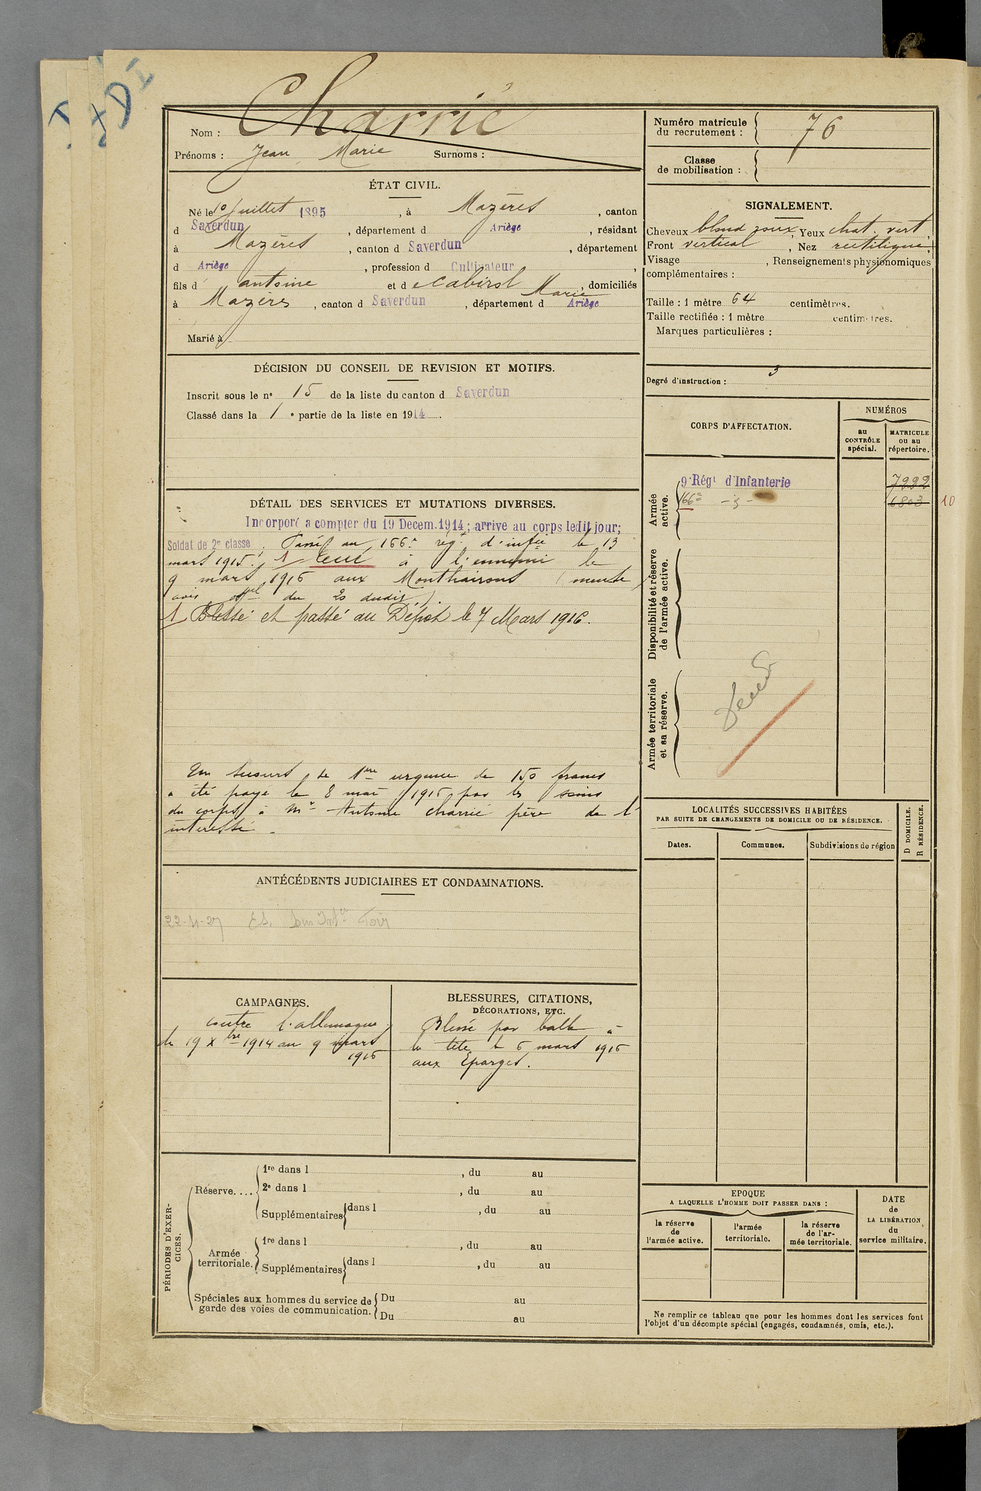 Nom : Charrié
Prénoms : Jean, Marie Surnoms :
Numéro matricule du recrutement : 76
Classe de mobilisation :
ÉTAT CIVIL.
Né le 10 Juillet 1895, à Mazères, canton
d Saverdun, département d Ariège, résidant
à Mazères, canton d Saverdun, département
d Ariège, profession d Cultivateur,
fils d antoine et de Cabirol Marie, domiciliés
à Mazères, canton d Saverdun, département d Ariège
Marié à
SIGNALEMENT.
Cheveux blond roux, Yeux chat. vert.
Front vertical, Nez rectiligne,
Visage , Renseignements physionomiques
complémentaires :
Taille : 1 mètre 64 centimètres.
Taille rectifiée : 1 mètre centimètres.
Marques particulières :
Degré d'instruction : 3
DÉCISION DU CONSEIL DE REVISION ET MOTIFS.
Inscrit sous le n° 15 de la liste du canton d Saverdun
Classé dans la 1e partie de la liste en 1914.
DÉTAIL DES SERVICES ET MUTATIONS DIVERSES.
Incorporé a compter du 19 Decem. 1914; arrivé au corps ledit jour;
Soldat de 2e classe. Passé au 166e rég. d'infie le 13
mars 1915. 1 Tué à l'ennemi le
9 mars 1916 aux Monthairons (
avis offel du 20 dudit).
1 Blessé et passé au Dépôt le 7 Mars 1916.
Un secours de 1ère urgence de 150 francs
a été payé le 8 mai 1916 par les soins
du corps à Mr Antoine Charrié père de l'
intéressé.
CORPS D'AFFECTATION.
NUMÉROS
au CONTRÔLE spécial.
MATRICULE ou au répertoire.
Armée active.
9e Régt d'Infanterie 7222
166e -3- 6803 10
Disponibilité et réserve de l'armée active.
Armée territoriale et sa réserve.
LOCALITÉS SUCCESSIVES HABITÉES
PAR SUITE DE CHANGEMENTS DE DOMICILE OU DE RÉSIDENCE.
Dates.
Communes.
Subdivisions de région
D DOMICILE.
R RÉSIDENCE.
ANTÉCÉDENTS JUDICIAIRES ET CONDAMNATIONS.
CAMPAGNES.
contre l'allemagne
du 19 Xbre 1914 au 9 mars
1916
BLESSURES, CITATIONS,
DÉCORATIONS, ETC.
Blessé par balle à
la tête le 6 mars 1916
aux Eparges.
PÉRIODES D'EXERCICES.
Réserve....
1re dans l , du au
2e dans l , du au
Supplémentaires dans l , du au
au
Armée territoriale.
1re dans l , du au
Supplémentaires dans l , du au
Spéciales aux hommes du service de garde des voies de communication.
Du au
Du au
EPOQUE
A LAQUELLE L'HOMME DOIT PASSER DANS :
la réserve de l'armée active.
l'armée territoriale.
la réserve de l'armée territoriale.
DATE de LA LIBÉRATION du service militaire.
Ne remplir ce tableau que pour les hommes dont les services font
l'objet d'un décompte spécial (engagés, condamnés, omis, etc.).